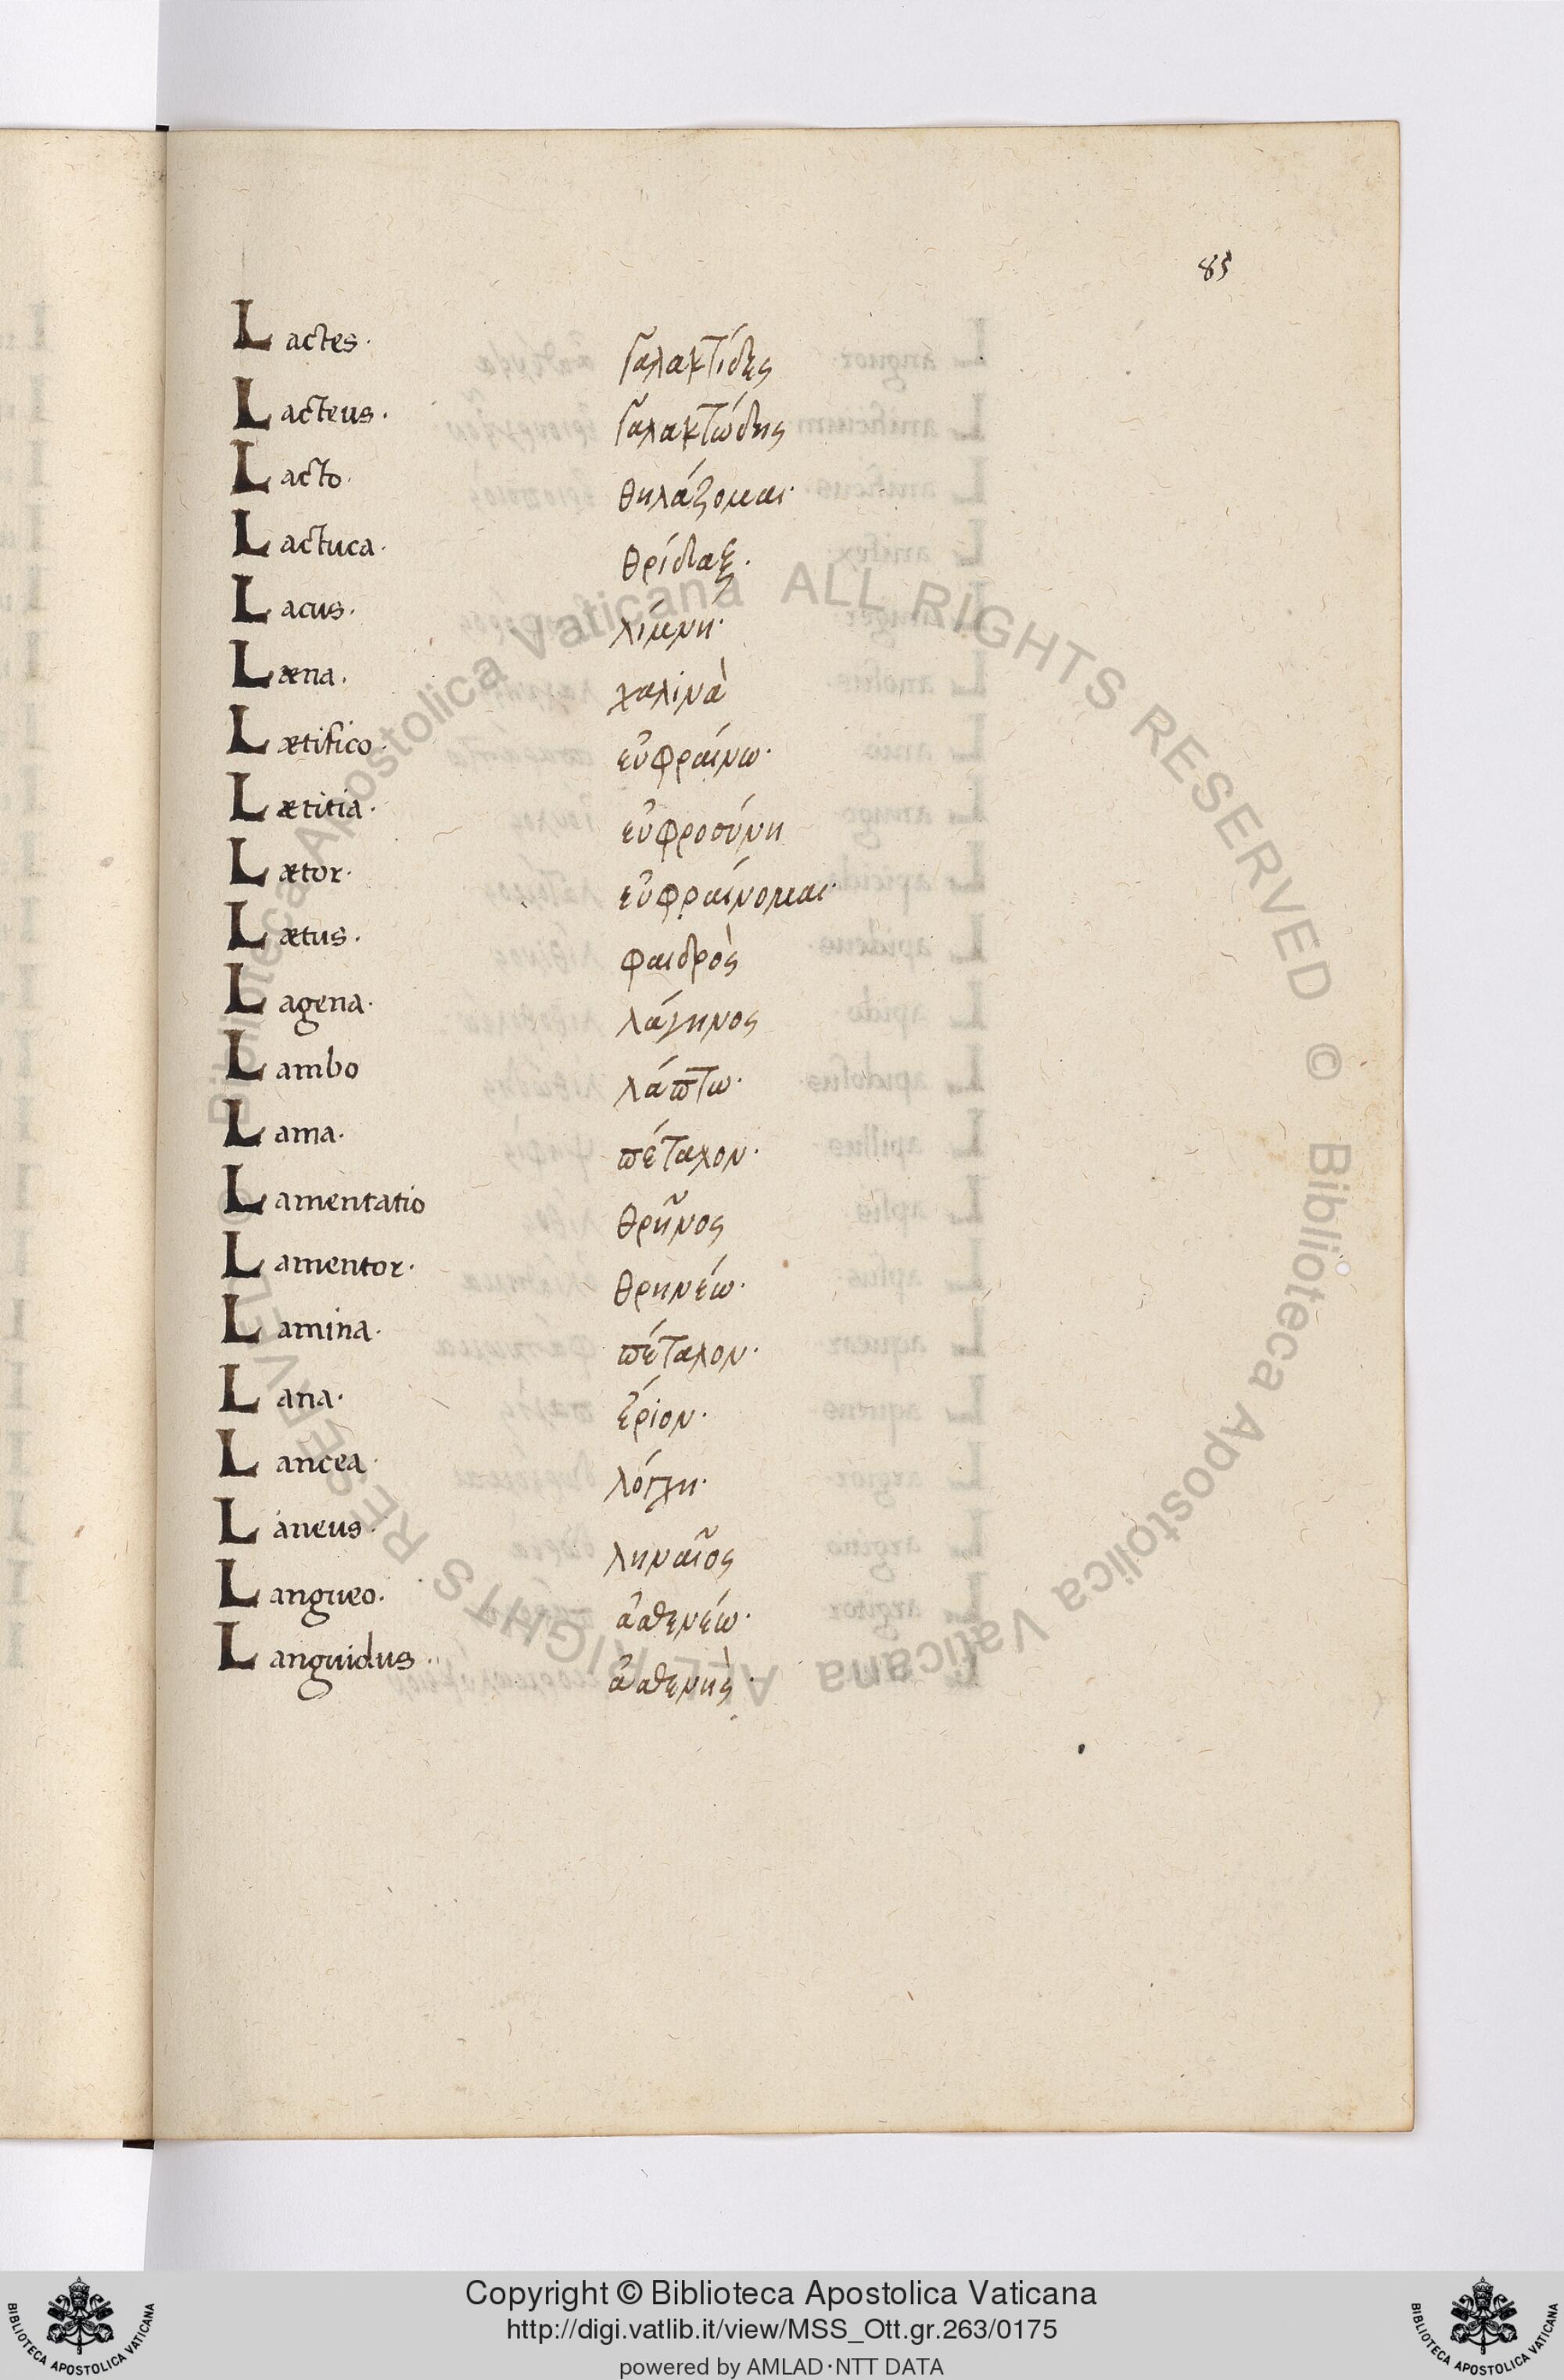 85
Lactes· γαλακτίδες
Lacteus· γαλακτώδης
Lacto· θηλάζομαι·
Lactuca· θρίδαξ·
Lacus· λίμνη·
Læna· χαλινὰ
Lætifico· εὐφραίνω·
Lætitia· εὐφροσύνη
Lætor· εὐφραίνομαι·
Lætus· φαιδρὸς
Lagena· λάγηνος
Lambo λάπτω·
Lama· πέταλον·
Lamentatio θρῆνος
Lamentor· θρηνέω·
Lamina· πέταλον·
Lana· ἔριον·
Lancea· λόγχη·
Laneus· ληναῖος
Langueo· ἀσθενέω·
Languidus· ἀσθενὴς·
Copyright © Biblioteca Apostolica Vaticana
http://digi.vatlib.it/view/MSS_Ott.gr.263/0175
powered by AMLAD·NTT DATA
BIBLIOTECA APOSTOLICA VATICANA
BIBLIOTECA APOSTOLICA VATICANA
© Biblioteca Apostolica Vaticana ALL RIGHTS RESERVED
© Biblioteca Apostolica Vaticana ALL RIGHTS RESERVED